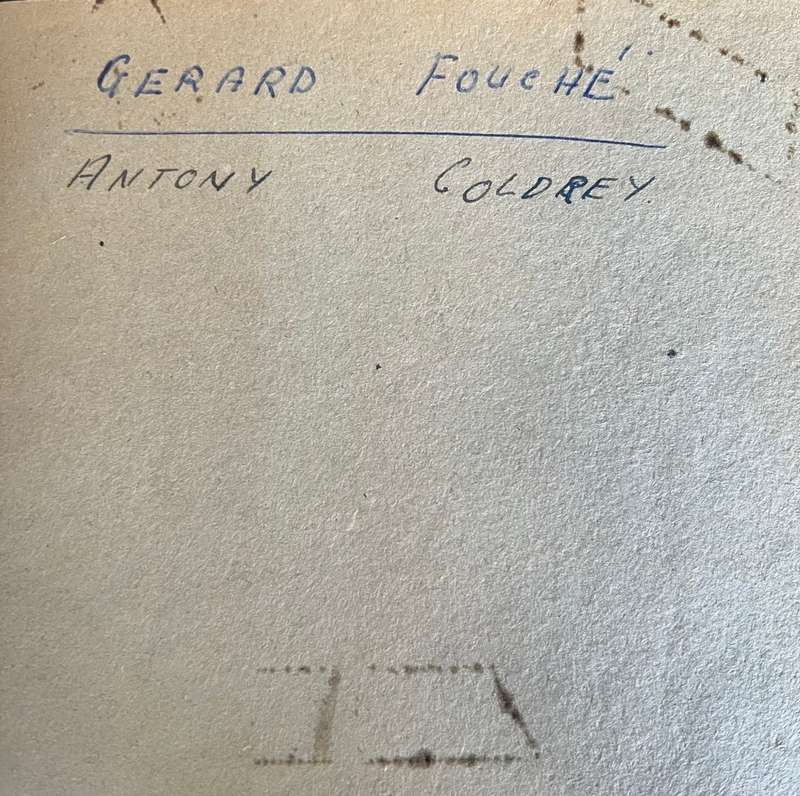 GERARD FOUCHÉ
ANTONY COLDREY.